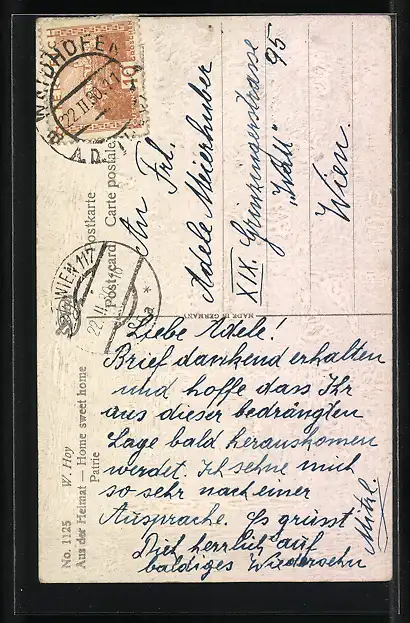 WAIDHOFEN
22.II.30
WIEN 117
22.II
Postkarte
Postcard Carte postale
MADE IN GERMANY
No. 1125 W. Hoy
Aus der Heimat — Home sweet home
Patrie
An Frl.
Adele Meierhuber
XIX. Grinzingerstrasse 95
Wien.
Liebe Adele!
Brief dankend erhalten
und hoffe dass Ihr
aus dieser bedrängten
Lage bald herauskomen
werdet. Ich sehne mich
so sehr nach einer
Aussprache. Es grüsst
Dich herzlich auf
baldiges Wiedersehn
Mitzl.